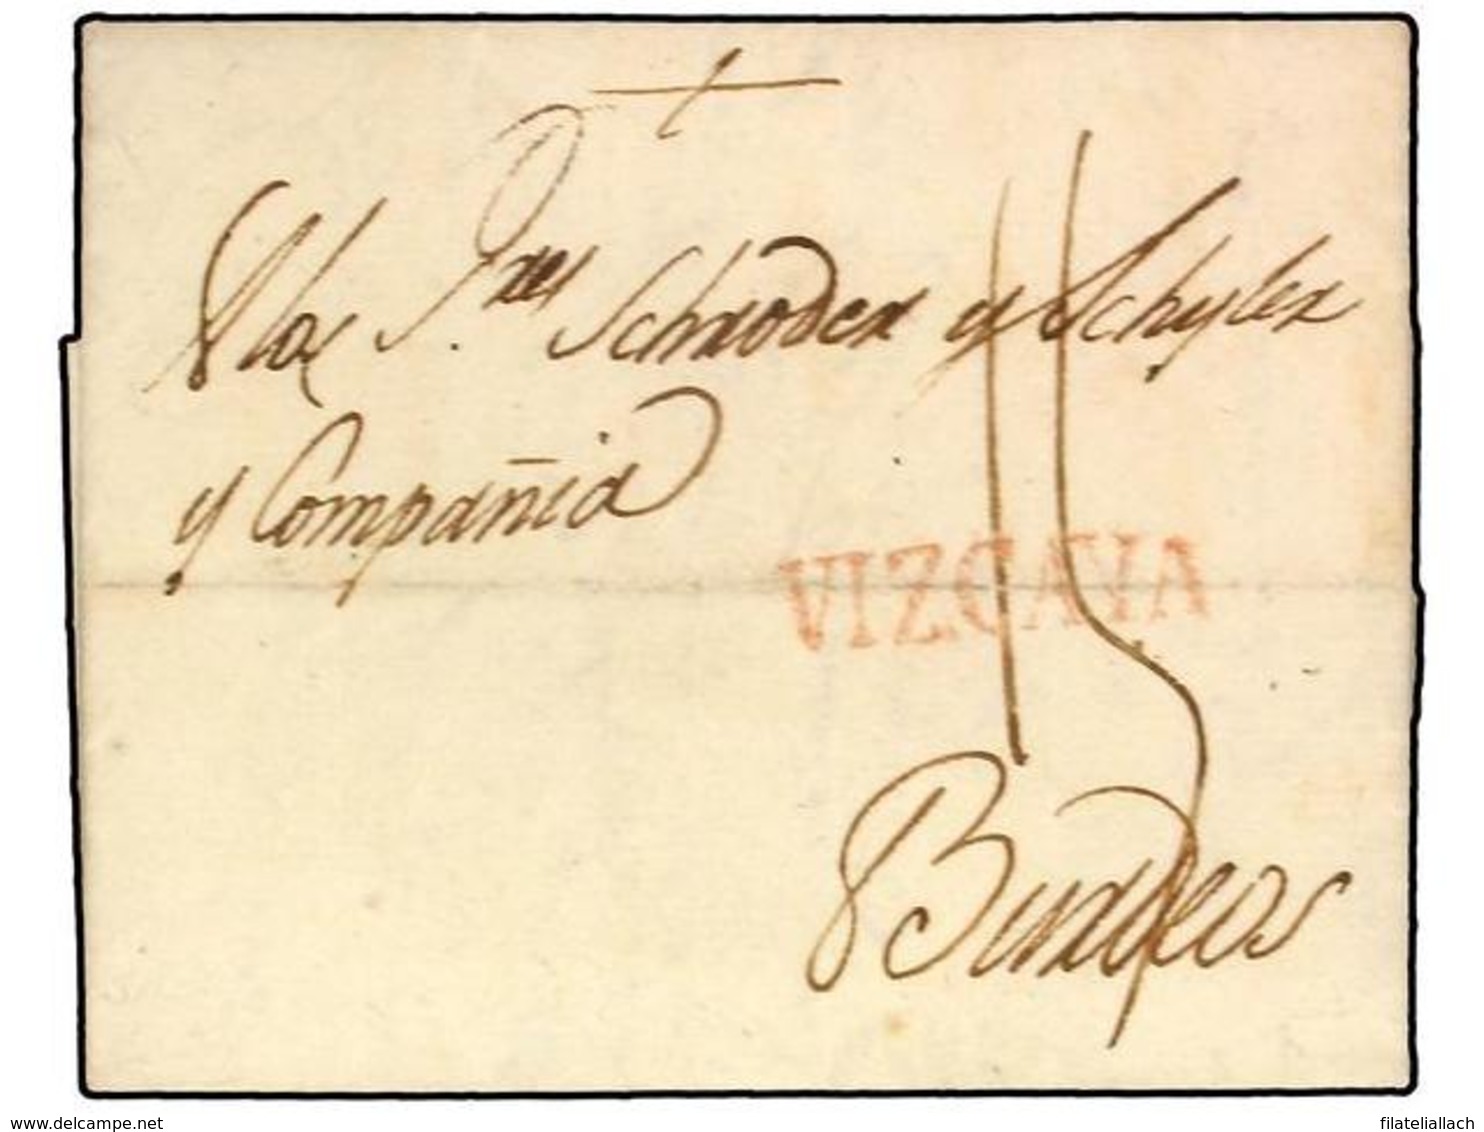 A los S.res Schroder y Schyler
y Compañia
VIZCAYA
15
Burdeos
delcampe.net
filateliallach